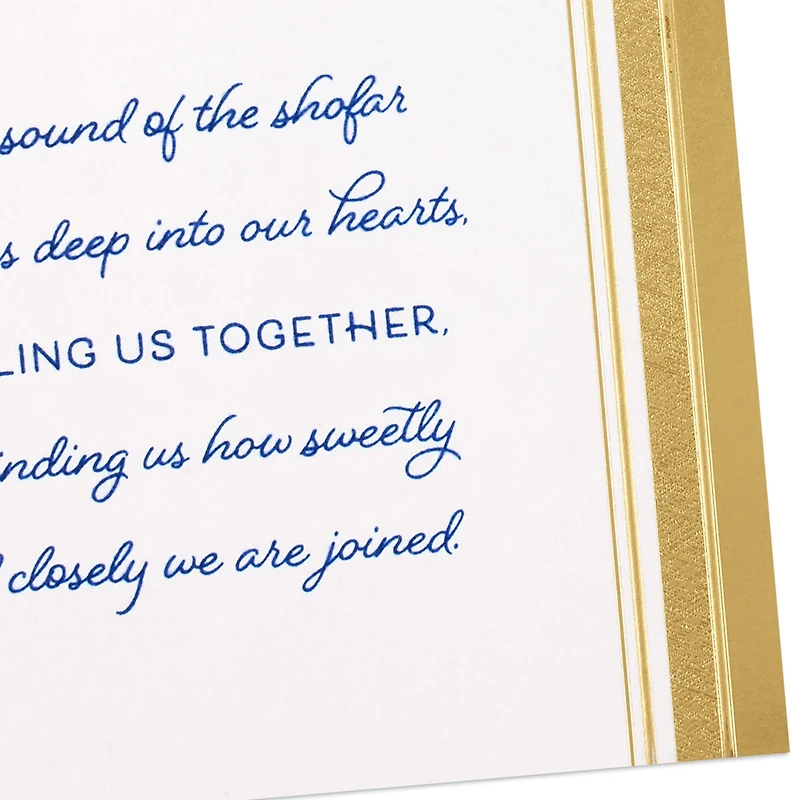 sound of the shofar
s deep into our hearts,
LING US TOGETHER,
inding us how sweetly
closely we are joined.